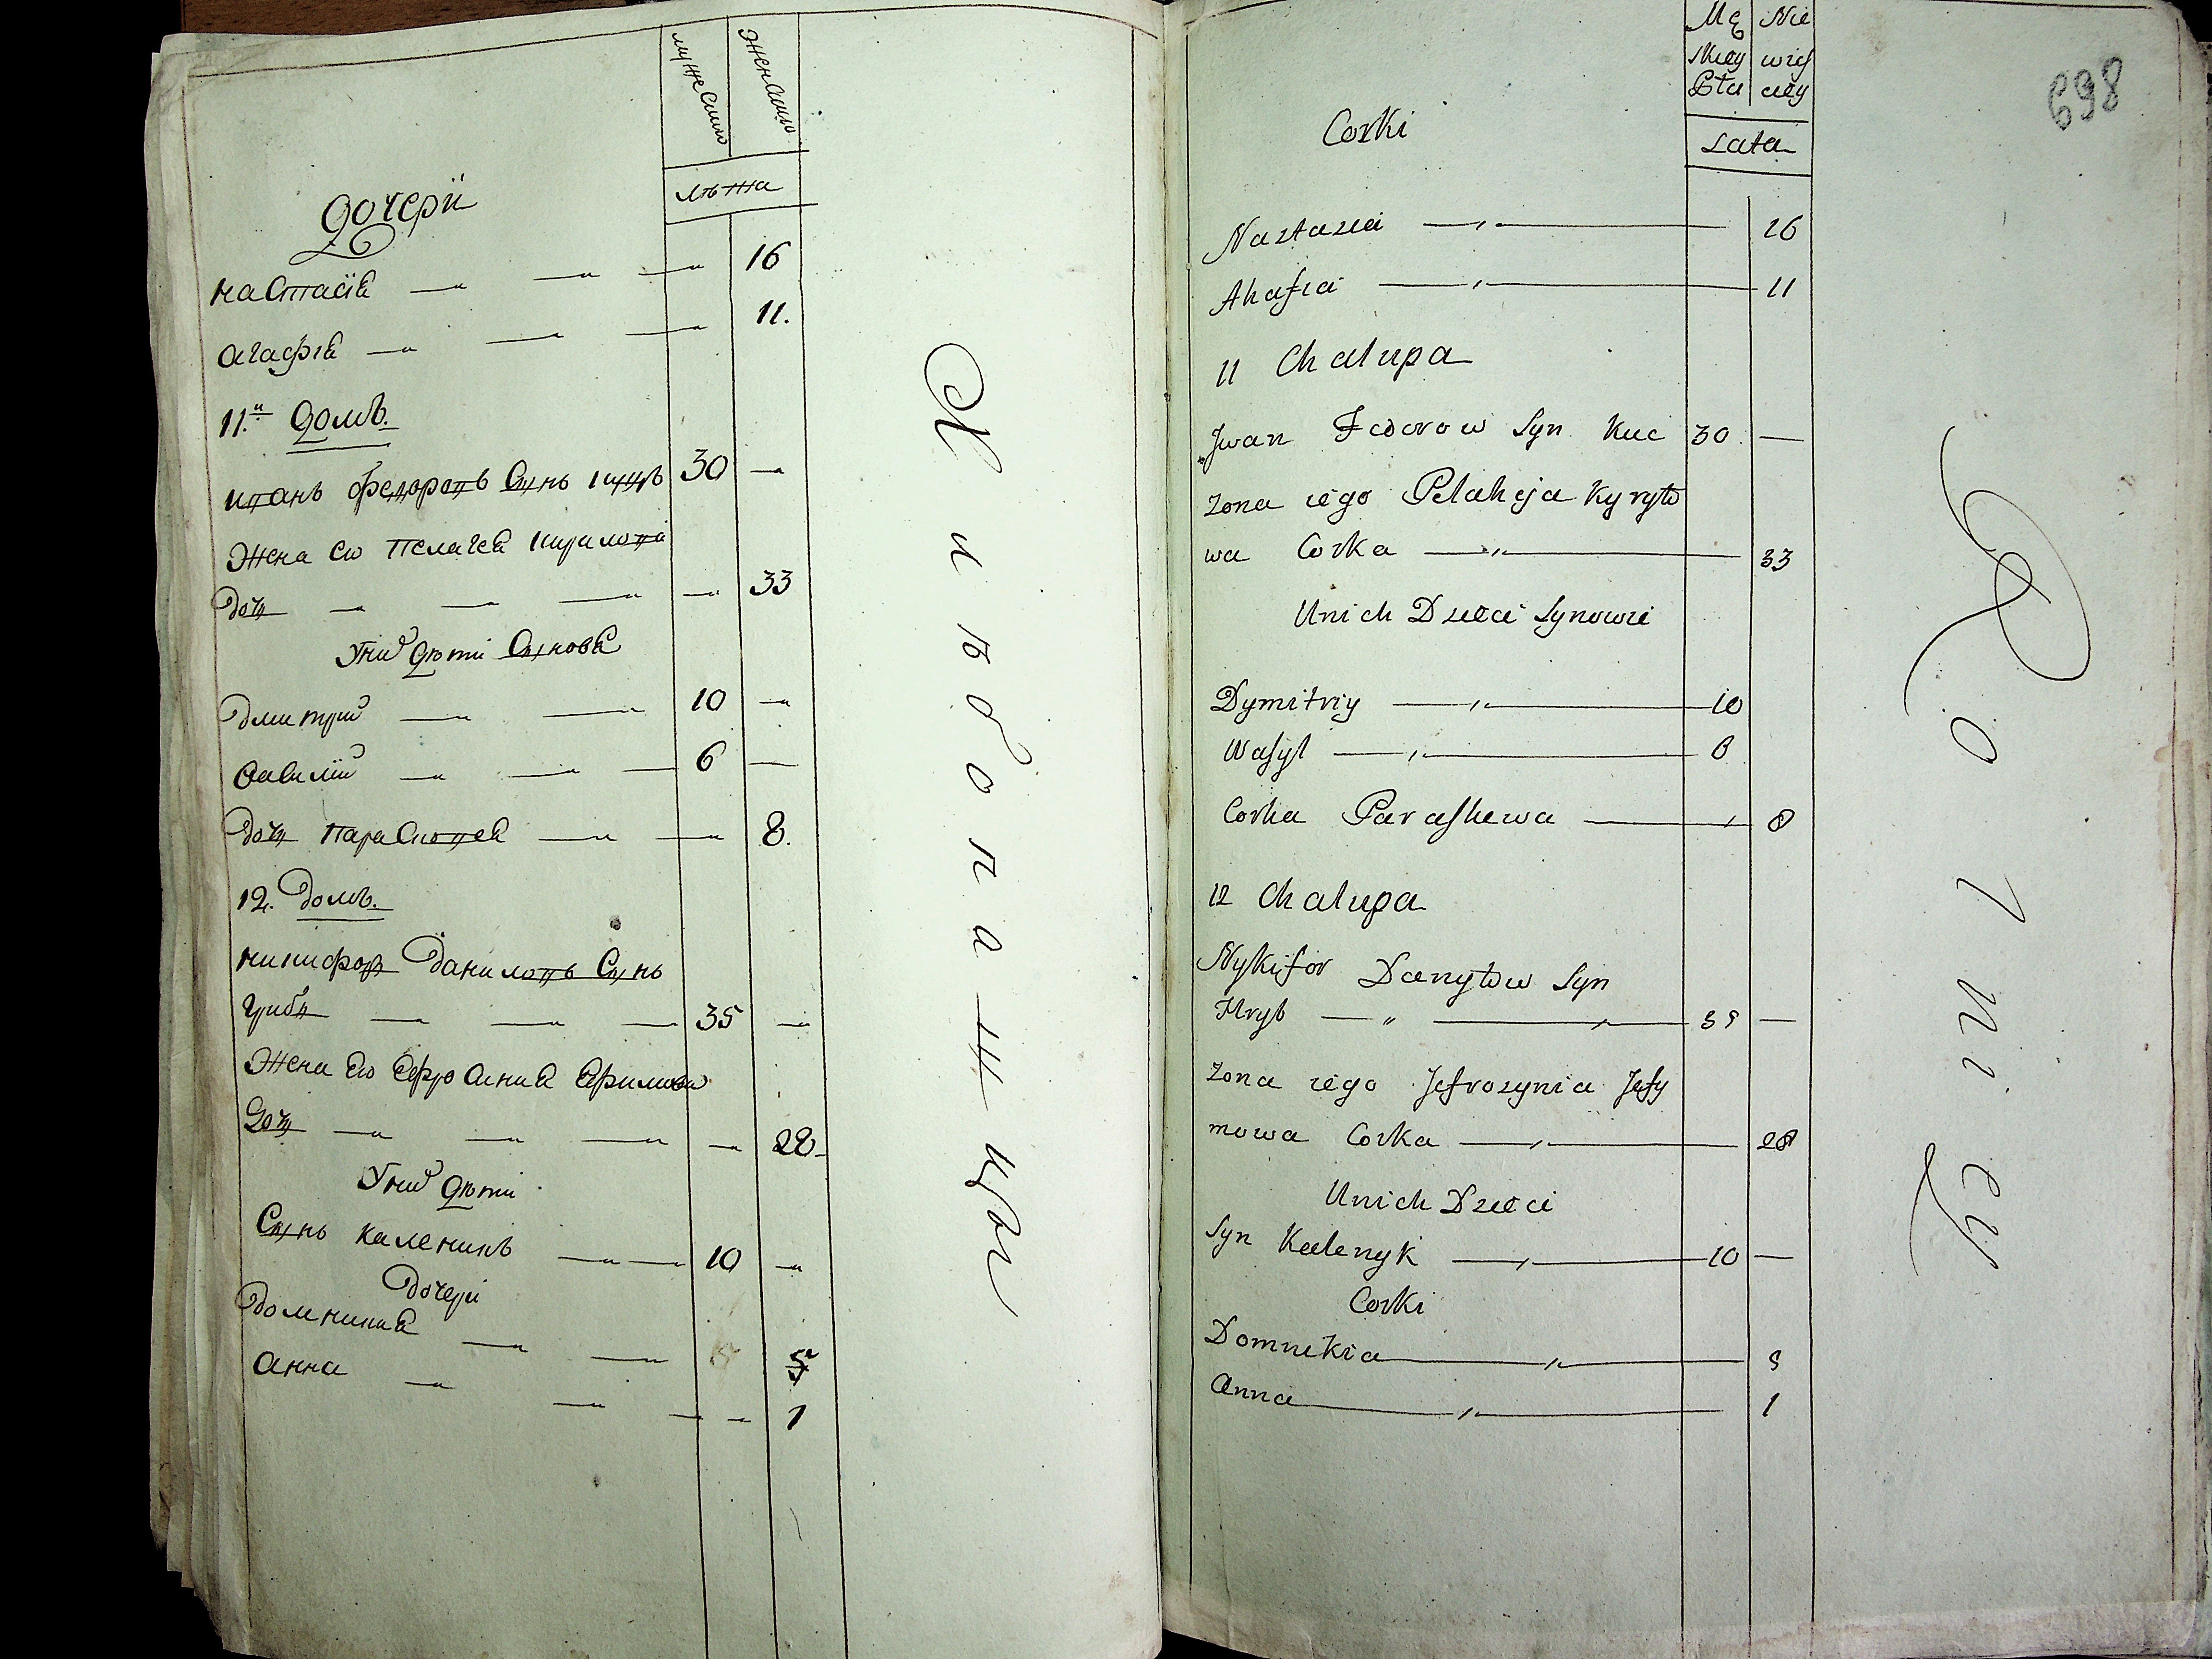 мужеска
женска
лѣта
Дочери
Настасія — — — 16
Агафія — — — 11.
11.й Домъ.
Иванъ Федоровъ Сынъ Куцъ 30 —
Жена его Пелагея Кирилова
Дочь — — — — 33
У них Дѣти Сыновя
Дмитрий — — 10 —
Василий — — — 6 —
Дочь Парасковея — — 8.
12. Домъ.
Никифор Даниловъ Сынъ
Грибъ — — — 35 —
Жена его Ефросиния Ефимова
Дочь — — — — 28
У них Дѣти
Сынъ Каленикъ — — 10 —
Дочери
Домникия — — 5
Анна — — — — 1
Хлѣбопашцы
698
Mę Nie
skiey wieś
Pta ciey
Lata
Corki
Nastazia — 16
Ahafia — 11
11 Chalupa
Jwan Fedorow Syn Kuc 30 —
zona iego Pelaheja Kyryło
wa Corka — 33
Unich Dzieci Synowie
Dymitriy — 10
Wasyl — 6
Corka Paraskewa — 8
12 Chalupa
Nykifor Danyłow Syn
Hryb — 35 —
zona iego Jefrozynia Jefy
mowa Corka — 28
Unich Dzieci
Syn Kalenyk — 10 —
Corki
Domnikia — 5
Anna — 1
Rolnicy